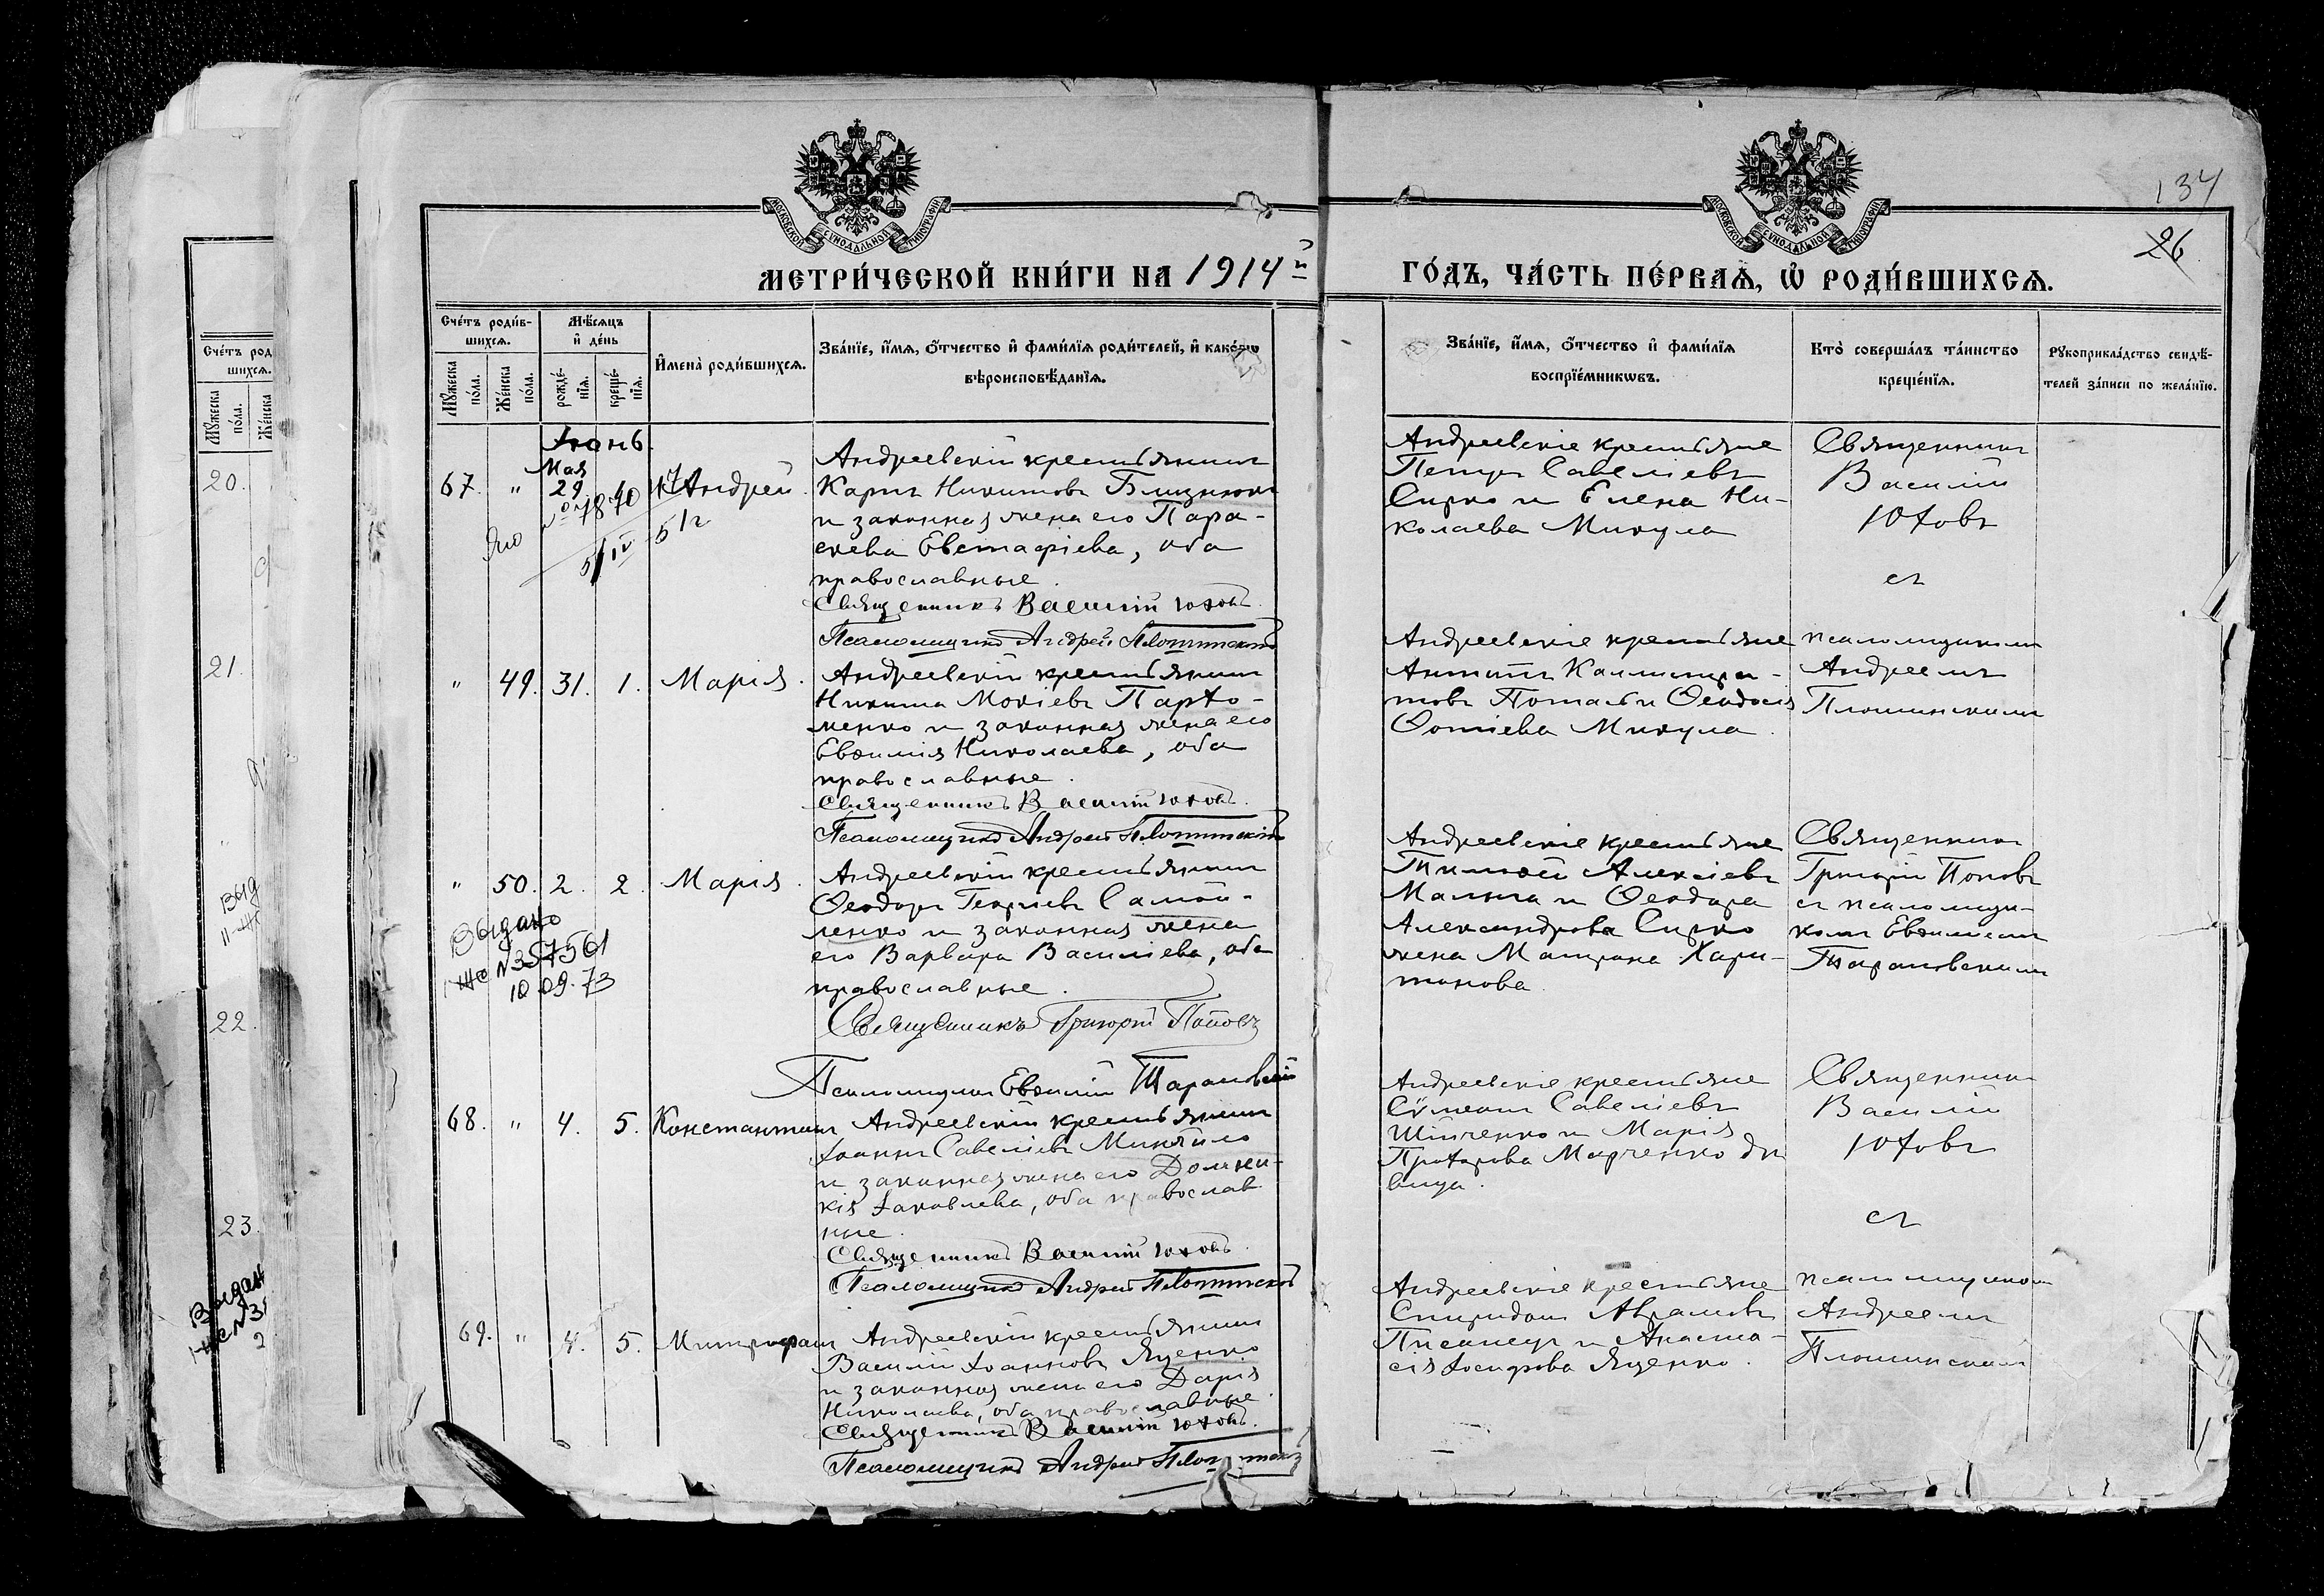 134
26
МОСКОВСКОЙ СѴНОДАЛЬНОЙ ТИПОГРАФІИ
МОСКОВСКОЙ СѴНОДАЛЬНОЙ ТИПОГРАФІИ
МЕТРИ́ЧЕСКОЙ КНИ́ГИ НА 1914й ГО́ДЪ, ЧА́СТЬ ПЕ́РВАѦ, Ѽ РОДИ́ВШИХСѦ.
Сче́тъ роди́в-
шихсѧ.
Мꙋжеска
по́ла.
Же́нска
по́ла.
Мѣ́сѧцъ
и҆ де́нь
рожде́-
нїѧ.
креще́-
нїѧ.
И҆мена̀ роди́вшихсѧ.
Зва́нїе, и҆́мѧ, ѻ҆́тчество и҆ фами́лїѧ роди́телей, и҆ како́гѡ
вѣроисповѣ́данїѧ.
Зва́нїе, и҆́мѧ, ѻ҆́тчество и҆ фами́лїѧ
воспрїе́мникѡвъ.
Кто̀ соверша́лъ та́инство
креще́нїѧ.
Рꙋкоприкла́дство свидѣ́-
телей за́писи по жела́нїю.
Іюнь.
Мая
67. " 29 Андрей.
№ 7870
Андреевскій крестьянинъ
Карпъ Никитовъ Близнюкъ
и законная жена его Пара-
скева Евстафіева, оба
православные.
Священникъ Василій Юховъ.
Псаломщикъ Андрей Плотинскій
Андреевскіе крестьяне
Петръ Савеліевъ
Сирко и Елена Ни-
колаева Микула
Священникъ
Василій
Юховъ
съ
псаломщикомъ
Андреемъ
Плотинскимъ
" 49. 31. 1. Марія.
Андреевскій крестьянинъ
Никита Мокіевъ Пархо-
менко и законная жена его
Евѳимія Николаева, оба
православные.
Священникъ Василій Юховъ.
Псаломщикъ Андрей Плотинскій
Андреевскіе крестьяне
Антипъ Каллистра-
товъ и Ѳеодосія
Ѳотіева Микула.
" 50. 2. 2. Марія.
Выдано
№357561
10.09.73
Андреевскій крестьянинъ
Ѳеодоръ Георгіевъ Самой-
ленко и законная жена
его Варвара Василіева, оба
православные.
Священникъ Григорій Поповъ
Псаломщикъ Евѳимій Тарановскій
Андреевскіе крестьяне
Тимоѳей Алексіевъ
Малыга и Ѳеодора
Александрова Сирко
жена Матрона Хари-
тонова.
Священникъ
Григорій Поповъ
съ псаломщи-
комъ Евѳиміемъ
Тарановскимъ
68. " 4. 5. Константинъ
Андреевскій крестьянинъ
Іоаннъ Савеліевъ Миняйло
и законная жена его Домни-
кія Іаковлева, оба православ-
ные.
Священникъ Василій Юховъ.
Псаломщикъ Андрей Плотинскій
Андреевскіе крестьяне
Сѵмеонъ Савеліевъ
и Марія
Прохорова Марченко дѣ-
вица.
Священникъ
Василій
Юховъ
съ
псаломщикомъ
Андреемъ
Плотинскимъ
69. " 4. 5. Митрофанъ
Андреевскій крестьянинъ
Василій Іоанновъ Яценко
и законная жена его Дарія
Николаева, оба православные.
Священникъ Василій Юховъ.
Псаломщикъ Андрей Плотинскій
Андреевскіе крестьяне
Спиридонъ Аврамовъ
Писанецъ и Анаста-
сія Іосифова Яценко.
Сче́тъ род
шихсѧ.
Мꙋжеска
по́ла.
Же́нска
20.
21.
22.
23.
Выдан